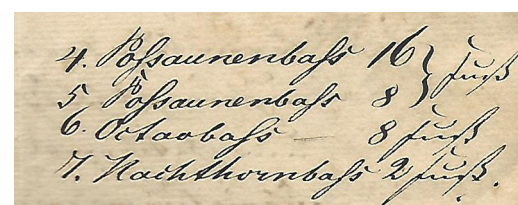 4. Possaunenbass 16 } Fuß
5 Possaunenbass 8
6. Octavbass — 8 Fuß
7. Nachthornbass 2 Fuß.